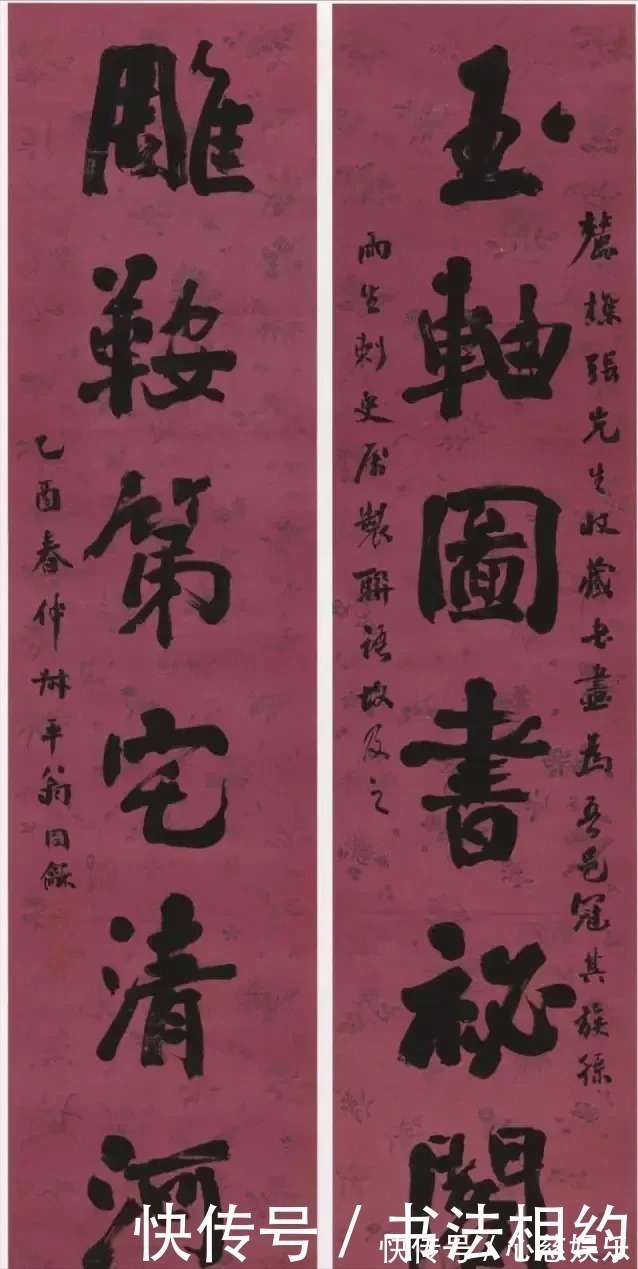 玉軸圖書祕閣
麓樵張先生收藏書畫為吾邑冠其族孫
雨生刺史屬製聯語故及之
雕鞍第宅清河
乙酉春仲叔平翁同龢
快传号 / 书法相约
快传号 / 心慈娱乐